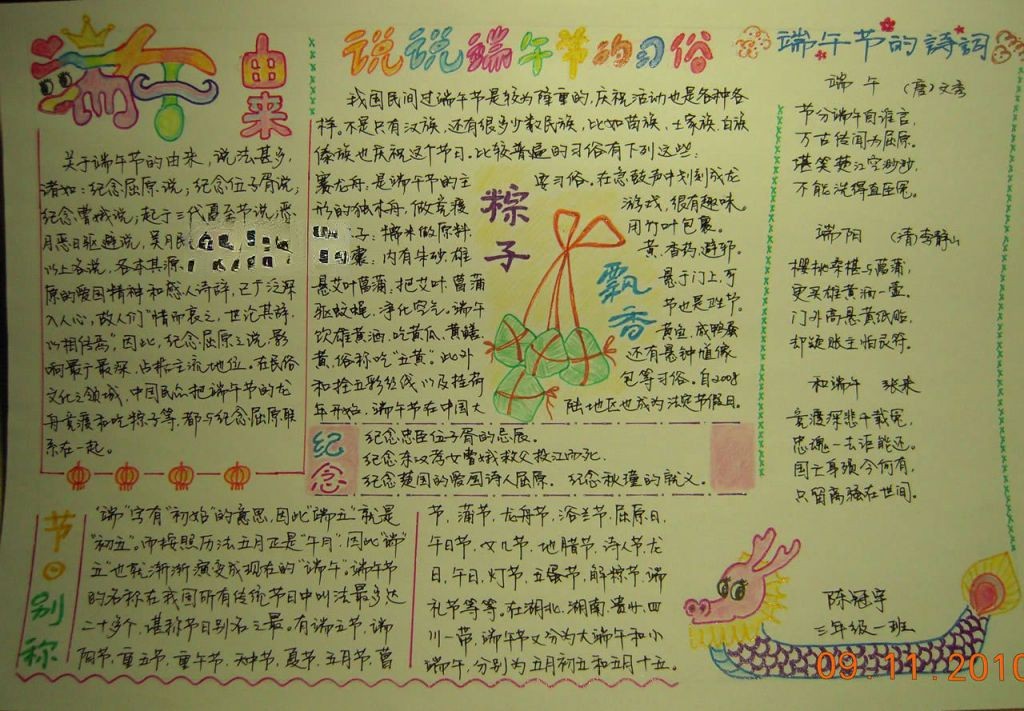 端午
由来
关于端午节的由来，说法甚多，
诸如：纪念屈原说；纪念伍子胥说；
纪念曹娥说；起于三代夏至节说；恶
月恶日驱避说，吴月民
以上各说，各本其源
原的爱国精神和感人诗辞，已广泛深
入人心，故人们“惜而哀之，世论其辞，
以相传焉”因此，纪念屈原之说，影
响最广最深，占据主流地位。在民俗
文化之领域，中国民众把端午节的龙
舟竞渡和吃粽子等，都与纪念屈原联
系在一起。
说说端午节的习俗
我国民间过端午节是较为隆重的，庆祝活动也是各种各
样。不是只有汉族，还有很多少数民族，比如苗族，土家族，白族
傣族也庆祝这个节日。比较普遍的习俗有下列这些：
赛龙舟，是端午节的主要习俗。在急鼓声中划刻成龙
形的独木舟，做竞渡游戏，很有趣味。
子：糯米的原料用竹叶包裹。
囊：内有朱砂雄黄，香药，避邪。
悬艾叶菖蒲，把艾叶菖蒲悬于门上，可
驱蚊蝇，净化空气。端午节也是卫生节。
饮雄黄酒，吃黄瓜，黄鳝黄鱼，咸鸭蛋
黄，俗称吃“五黄”。此外还有悬钟馗像
和拴五彩丝线以及挂荷包等习俗。自2008
年开始，端午节在中国大陆地区也成为法定节假日。
粽子
飘香
纪念
纪念忠臣伍子胥的忌辰。
纪念东汉孝女曹娥救父投江而死。
纪念楚国的爱国诗人屈原。 纪念秋瑾的就义。
端午节的诗词
端午 （唐）文秀
节分端午自谁言，
万古传闻为屈原。
堪笑楚江空渺渺，
不能洗得直臣冤。
端阳 （清）李静山
樱桃桑椹与菖蒲，
更买雄黄酒一壶。
门外高悬黄纸贴，
却疑账主怕灵符。
和端午 张耒
竞渡深悲千载冤，
忠魂一去讵能还。
国亡身殒今何有，
只留离骚在世间。
节日别称
“端”字有“初始”的意思，因此“端五”就是
“初五”。而按照历法五月正是“午月”，因此“端
五”也就渐渐演变成现在的“端午”。端午节
的名称在我国所有传统节日中叫法最多达
二十多个，堪称节日别名之最。有端五节，端
阳节，重五节，重午节，天中节，夏节，五月节，菖
节，蒲节，龙舟节，浴兰节，屈原日，
午日节，女儿节，地腊节，诗人节，龙
日，午日，灯节，五蛋节，解粽节，端
礼节等等。在湖北，湖南，贵州，四
川一带，端午节又分为大端午和小
端午，分别为五月初五和五月十五。
陈冠宇
三年级一班
09.11.2010